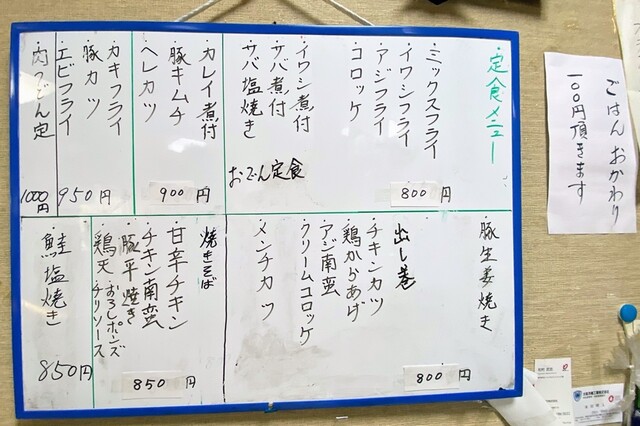 定食メニュー
・ミックスフライ
・イワシフライ
・アジフライ
・コロッケ
・イワシ煮付
・サバ煮付
・サバ塩焼き
おでん定食
800円
・カレイ煮付
・豚キムチ
・ヘレカツ
900円
・カキフライ
・豚カツ
・エビフライ
950円
・肉うどん定
1000円
・豚生姜焼き
・出し巻
・チキンカツ
・鶏からあげ
・アジ南蛮
・クリームコロッケ
・メンチカツ
800円
・焼きそば
・甘辛チキン
・チキン南蛮
・豚平焼き
・鶏天・おろしポンズ
・チリソース
850円
・鮭塩焼き
850円
ごはんおかわり
一〇〇円頂きます